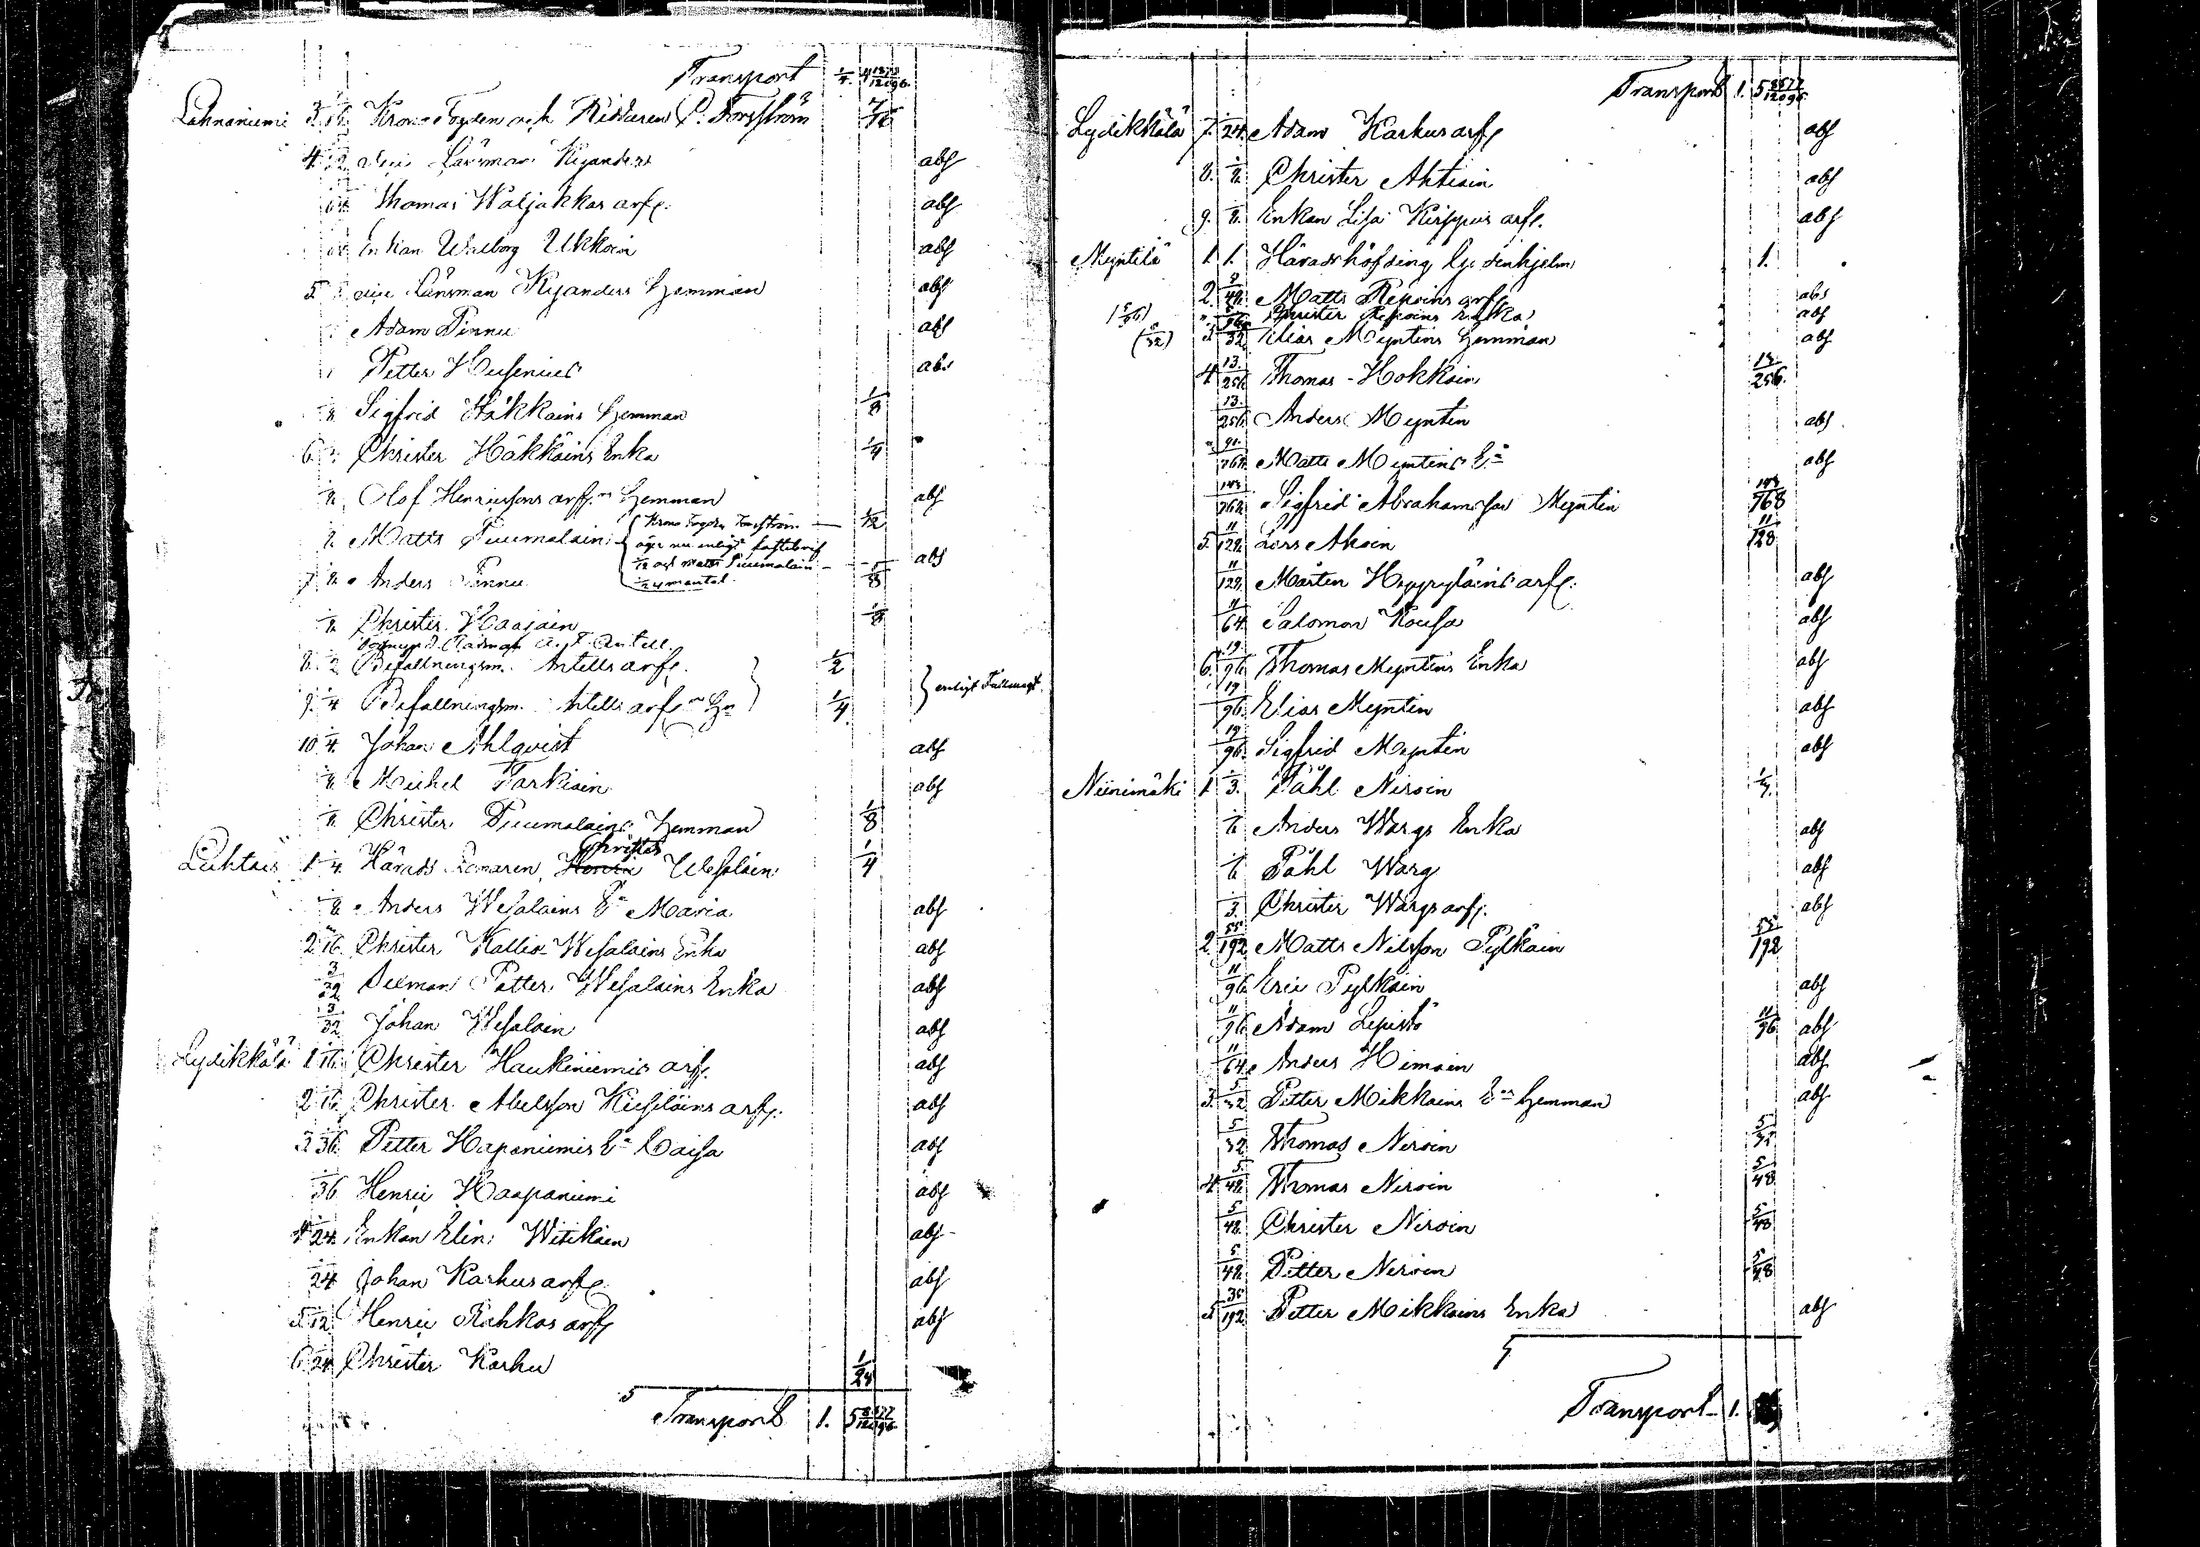 Transport 1/4. 4
Lahnaniemi 3. Krono Fogden och Riddaren C. Forsström 7/16
4. Länsman Kyanders abs
Thomas Wäljakkas arfv. abs
Enkan Walborg Ukkoin abs
5. Länsman Kyanders Hemman abs
Adam Pinnu abs
Petter Husenius abs
Sigfrid Häkkäins Hemman 1/8
6. Christer Häkkäins Enka 1/4
Olof Henricssons arfs Hemman abs
Matts Piiumalain { Krono Fogden Forsström 1/12
äger nu enligt fastebref
1/12 och Matts Piiumalain abs
1/24 mantal
7. Anders Pinnu 1/8
Christer Haajain 1/8
Antell
8. 1/2 Befallningsm. Antells arfv. 1/2
9. 1/4 Befallningsm. Antells arfv. Hn 1/4 } enligt Fullmagt.
10. 1/4 Johan Ahlqvist abs
1/8 Michel Tarkiain abs
1/8 Christer Piiumalains Hemman 1/8
Christer
Luhtais 1. 1/4. Härads Domaren Henric Wesalain 1/4
1/8 Anders Wesalains Ea Maria abs
2. 1/16 Christer Kallio-Wesalains Enka abs
3/32 Petter Wesalains Enka abs
3/32 Johan Wesalain abs
Lydikkälä 1. 1/16. Christer Haukiniemis arfv. abs
2. 1/16. Christer Abelsson Kiesiläins arfv. abs
3. 1/36. Petter Hapaniemis Ea Caisa abs
1/36 Henric Haapaniemi abs
4. 1/24. Enkan Elin Witikain abs
1/24 Johan Karhus arfv. abs
5. 1/12 Henric Rahkos arfv. abs
6. 1/24 Christer Karhu 1/24
5
Transport 1. 5 8577/12096
Transport 1. 5 8577/12096
Lydikkälä 7. 1/24. Adam Karhus arfv. abs
8. 1/8. Christer Ahtiain abs
9. 1/8. Enkan Lisa Kirppus arfv. abs
Myntilä 1. 1. Häradshöfding Lydenhjelm 1.
2. Matts Repoins arfv. abs
Christer Repoins Enka abs
(5/32) 3. 5/32 Elias Myntins Hemman abs
4. 13/256. Thomas Hokkain 13/256.
13/256. Anders Myntin abs
91/768. Matts Myntins Ea abs
143/768. Sigfrid Abrahamsson Myntin 143/768
5. 11/128. Lars Ahoin 11/128
11/128. Mårten Hyyryläins arfv. abs
11/64. Salomon Kousa abs
6. 19/96. Thomas Myntins Enka abs
19/96. Elias Myntin abs
19/96. Sigfrid Myntin abs
Niinimäki 1. 1/3. Påhl Niroin 1/3.
1/6. Anders Wargs Enka abs
1/6. Påhl Warg abs
1/3. Christer Wargs arfv. abs
2. 55/192 Matts Nilsson Pylkäin 55/192
11/96. Eric Pylkäin abs
11/96. Adam Lepistö 11/96 abs
11/64. Anders Himain abs
3. 5/32 Petter Mikkains Eas Hemman abs
5/32 Thomas Niroin 5/32
4. 5/48. Thomas Niroin 5/48
5/48. Christer Niroin 5/48
5/48. Petter Niroin 5/48
5. 35/192. Petter Mikkains Enka abs
Transport 1.